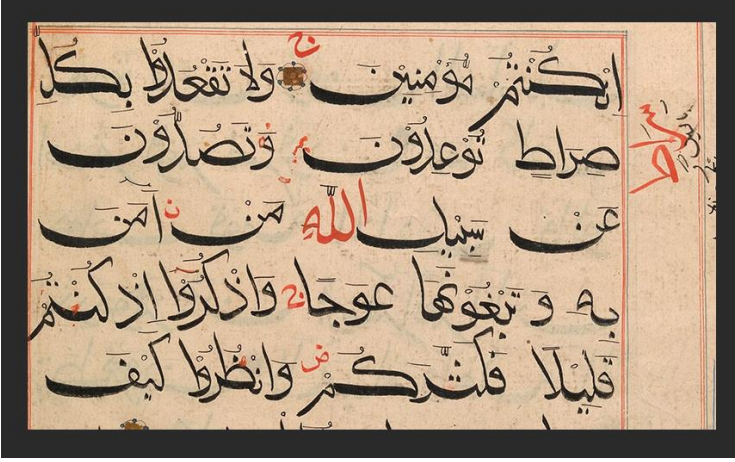 اِنْ كُنْتُمْ مُّؤْمِنِيْنَ ج وَلَا تَقْعُدُوْا بِكُلِّ
صِرَاطٍ تُوْعِدُوْنَ وَتَصُدُّوْنَ
عَنْ سَبِيْلِ اللّٰهِ مَنْ اٰمَنَ
بِهٖ وَ تَبْغُوْنَهَا عِوَجًا ج وَاذْكُرُوْا اِذْ كُنْتُمْ
قَلِيْلًا فَكَثَّرَكُمْ ص وَانْظُرُوْا كَيْفَ